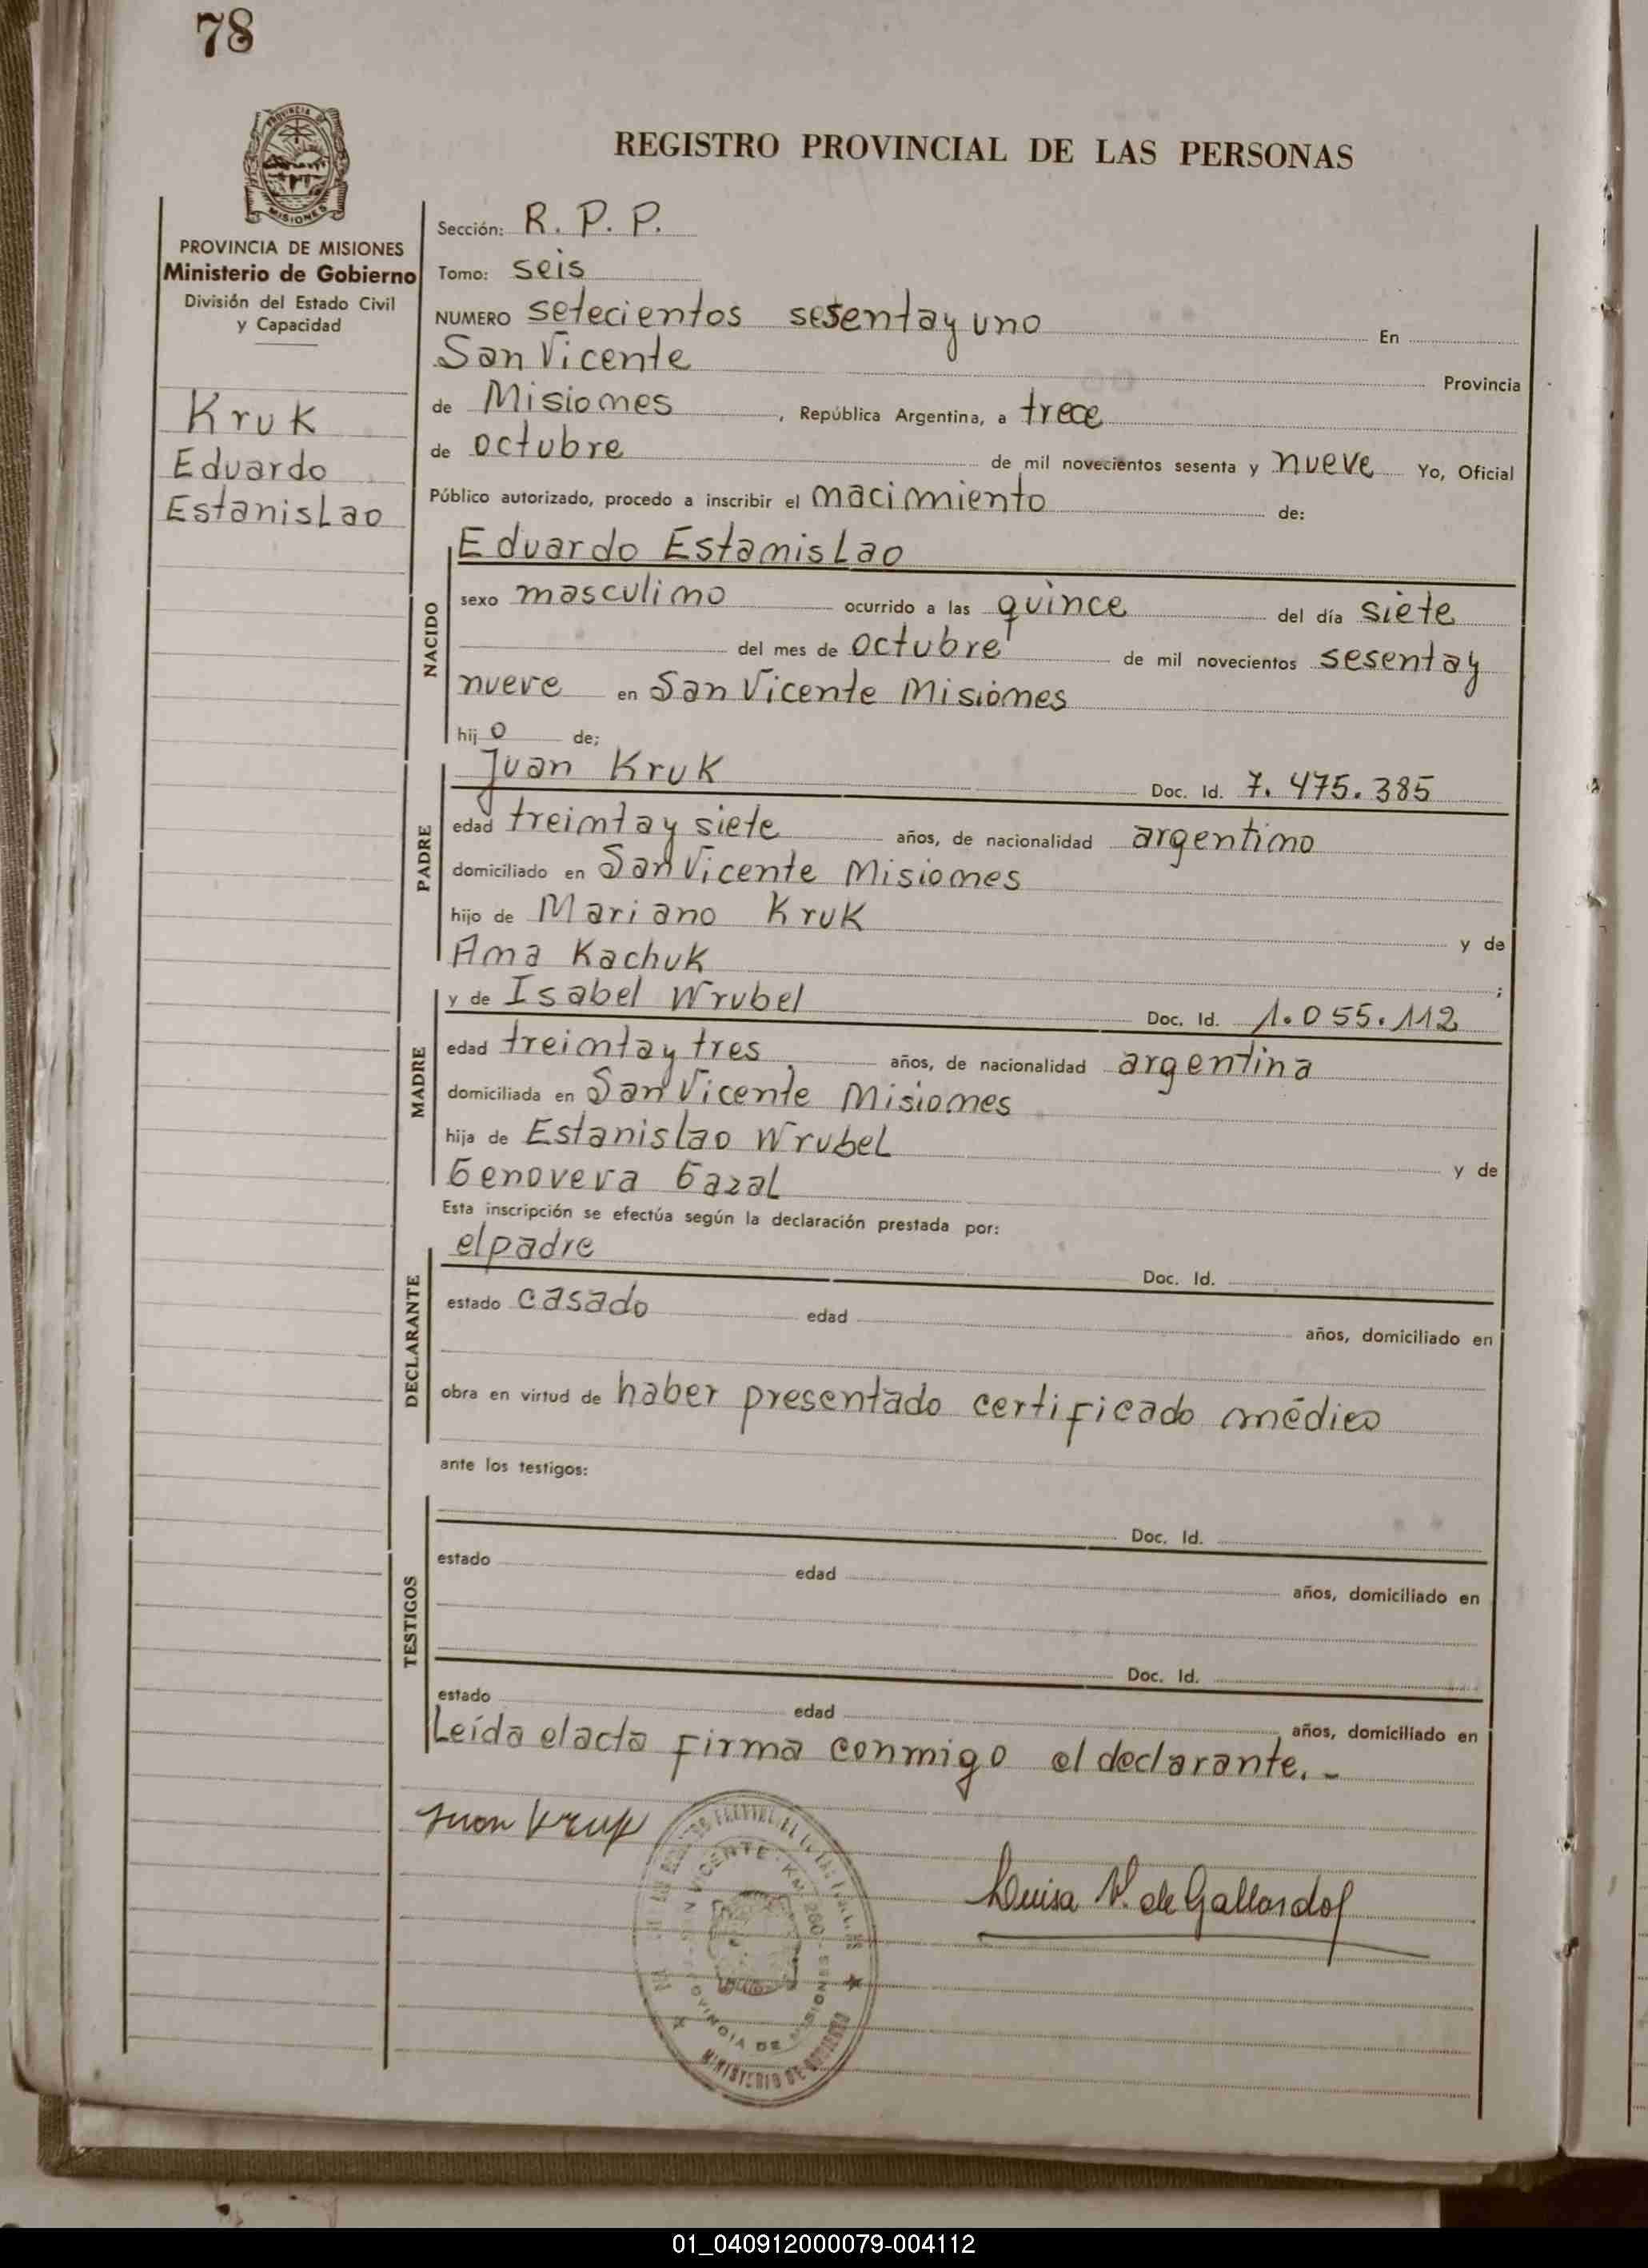 78
PROVINCIA DE
MISIONES
REGISTRO PROVINCIAL DE LAS PERSONAS
PROVINCIA DE MISIONES
Ministerio de Gobierno
División del Estado Civil
y Capacidad
Kruk
Eduardo
Estanislao
Sección: R. P. P.
Tomo: seis
NUMERO setecientos sesenta y uno En
San Vicente Provincia
de Misiones, República Argentina, a trece
de octubre de mil novecientos sesenta y nueve Yo, Oficial
Público autorizado, procedo a inscribir el nacimiento de:
NACIDO
Eduardo Estanislao
sexo masculino ocurrido a las quince del día siete
del mes de octubre de mil novecientos sesenta y
nueve en San Vicente Misiones
hijo de;
PADRE
Juan Kruk Doc. Id. 7.475.385
edad treinta y siete años, de nacionalidad argentino
domiciliado en San Vicente Misiones
hijo de Mariano Kruk y de
Ana Kachuk ;
MADRE
y de Isabel Wrubel Doc. Id. 1.055.112
edad treinta y tres años, de nacionalidad argentina
domiciliada en San Vicente Misiones
hija de Estanislao Wrubel y de
Genoveva Gazal
Esta inscripción se efectúa según la declaración prestada por:
DECLARANTE
el padre Doc. Id.
estado casado edad años, domiciliado en
obra en virtud de haber presentado certificado médico
ante los testigos:
TESTIGOS
Doc. Id.
estado edad años, domiciliado en
Doc. Id.
estado edad años, domiciliado en
Leída el acta firma conmigo el declarante.-
Juan Kruk
SAN VICENTE - KM 260 -
PROVINCIA DE MISIONES
MINISTERIO DE GOBIERNO
Luisa V. de Gallardo
01_040912000079-004112